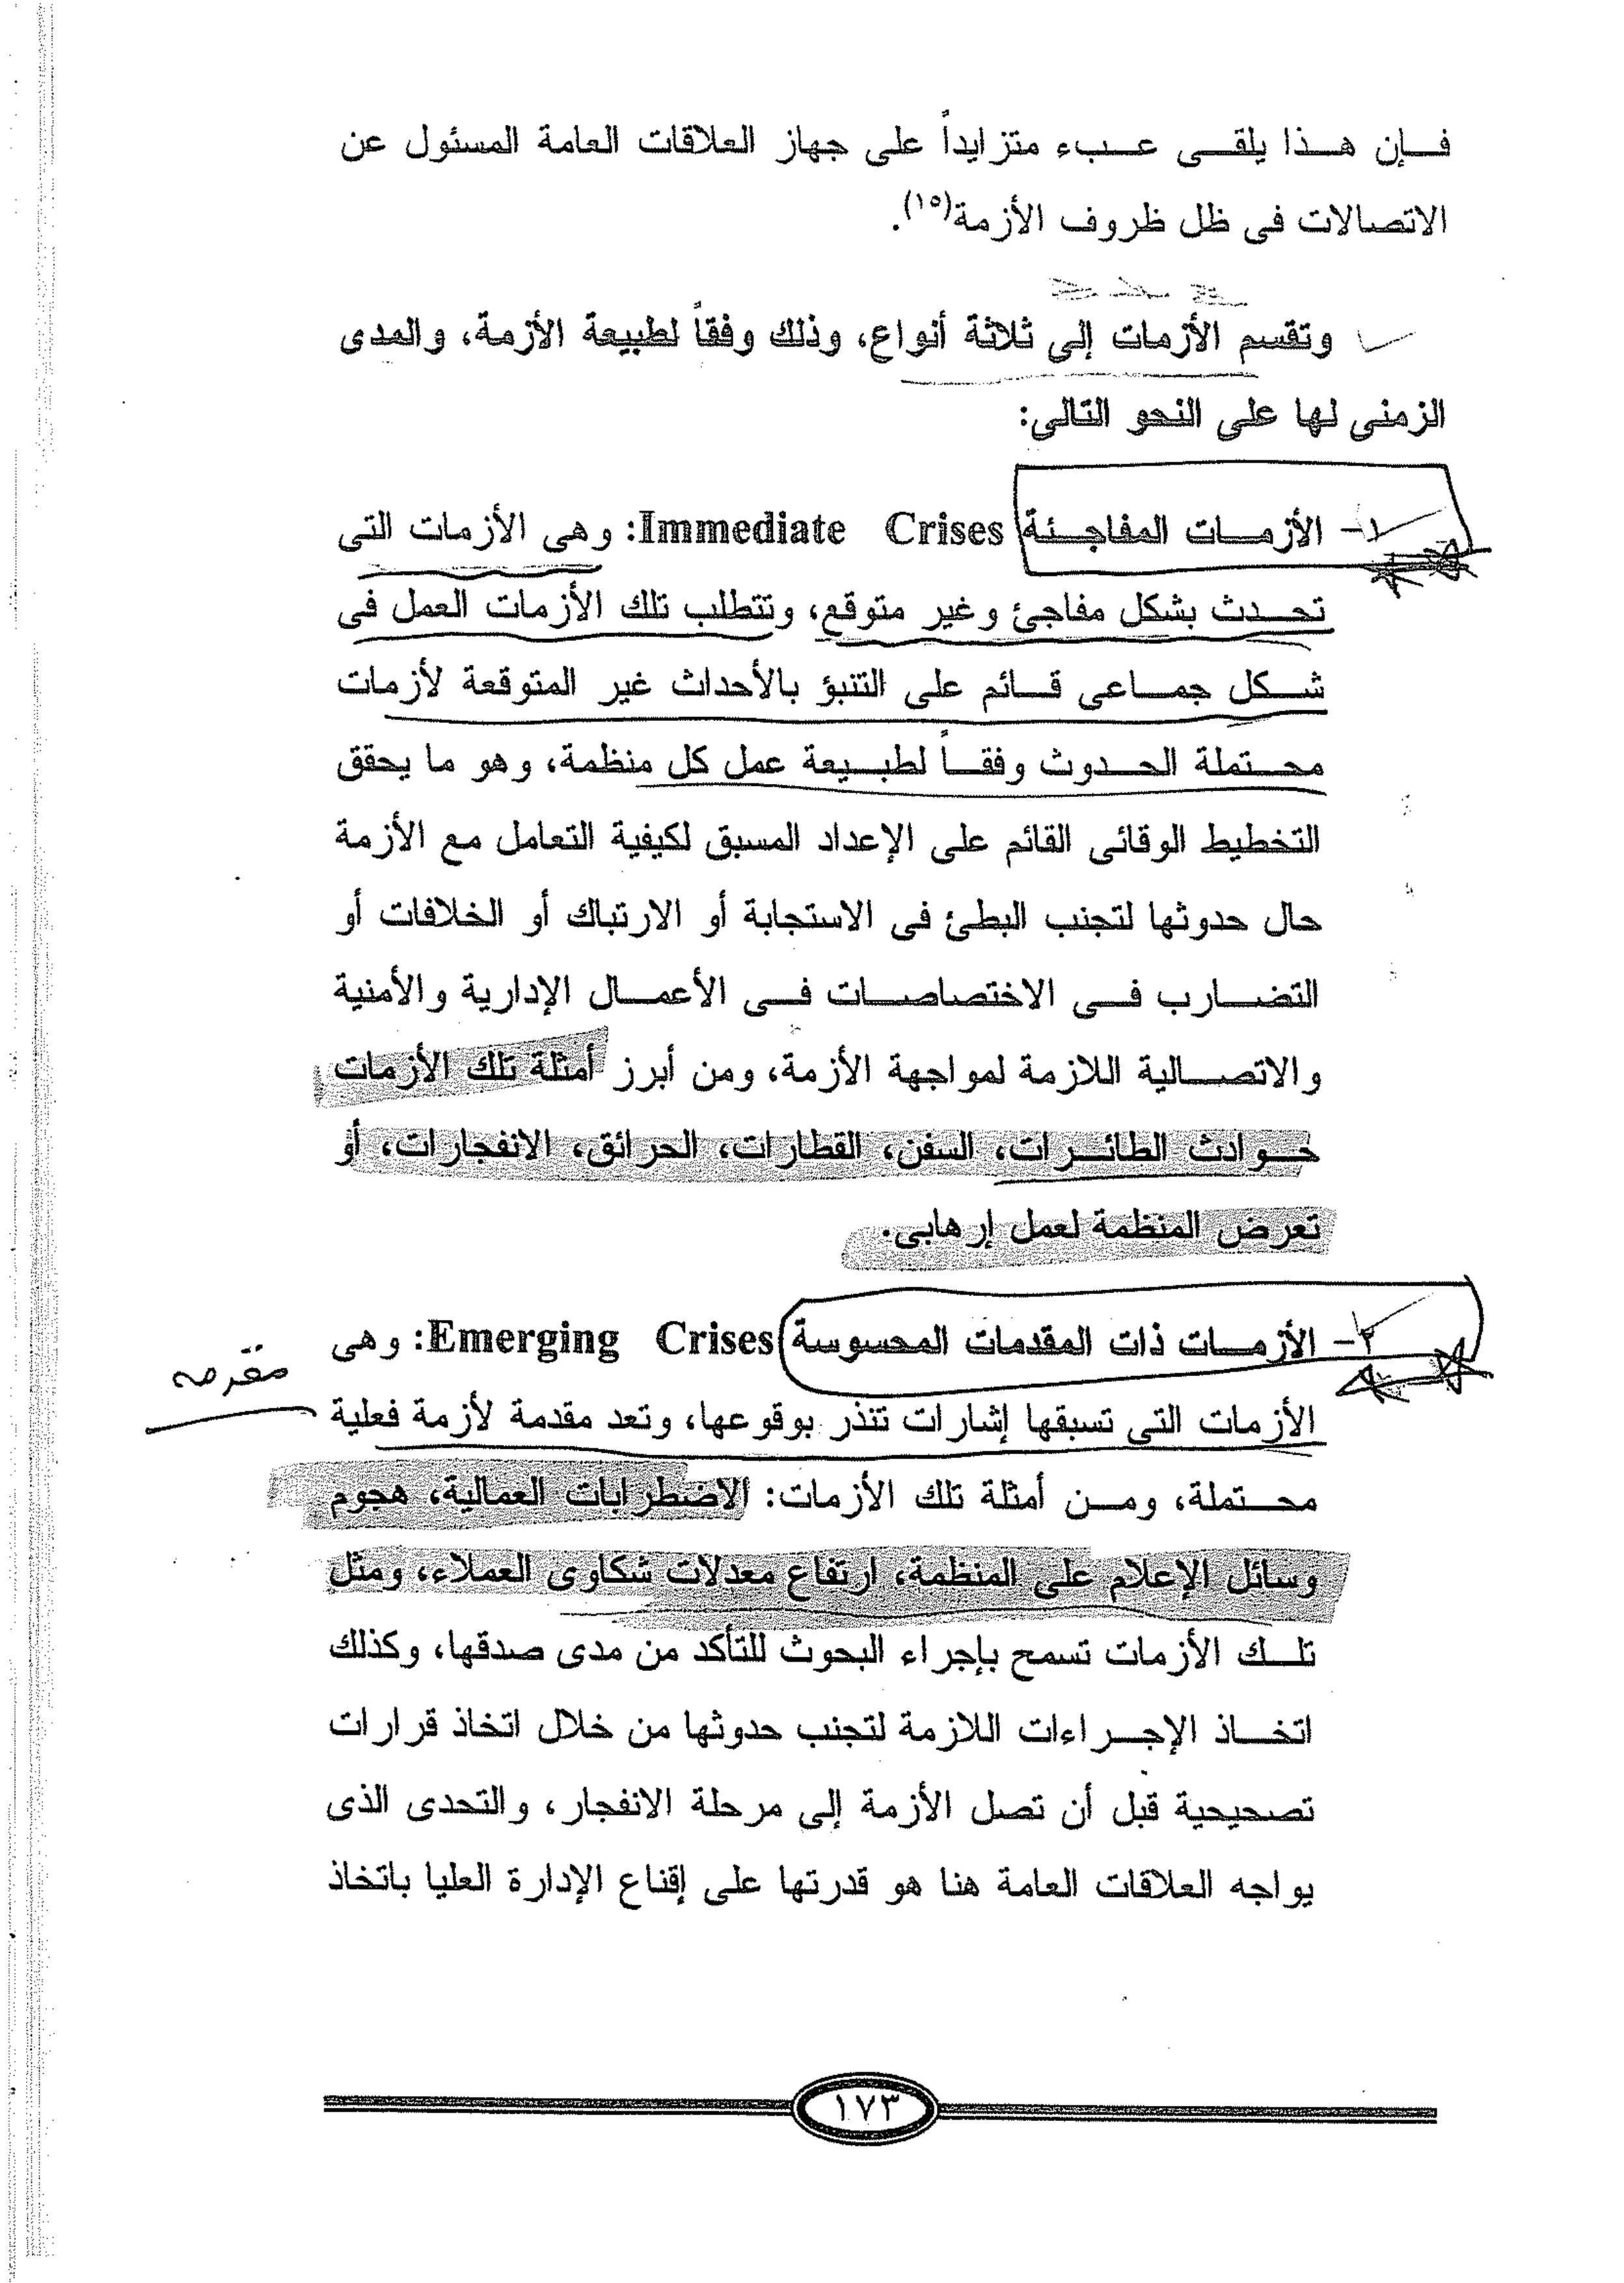 فإن هذا يلقى عبء متزايداً على جهاز العلاقات العامة المسئول عن
الاتصالات فى ظل ظروف الأزمة(١٥).
وتقسم الأزمات إلى ثلاثة أنواع، وذلك وفقاً لطبيعة الأزمة، والمدى
الزمنى لها على النحو التالى:
١- الأزمات المفاجئة Immediate Crises: وهى الأزمات التى
تحدث بشكل مفاجئ وغير متوقع، وتتطلب تلك الأزمات العمل فى
شكل جماعى قائم على التنبؤ بالأحداث غير المتوقعة لأزمات
محتملة الحدوث وفقاً لطبيعة عمل كل منظمة، وهو ما يحقق
التخطيط الوقائى القائم على الإعداد المسبق لكيفية التعامل مع الأزمة
حال حدوثها لتجنب البطئ فى الاستجابة أو الارتباك أو الخلافات أو
التضارب فى الاختصاصات فى الأعمال الإدارية والأمنية
والاتصالية اللازمة لمواجهة الأزمة، ومن أبرز أمثلة تلك الأزمات
حوادث الطائرات، السفن، القطارات، الحرائق، الانفجارات، أو
تعرض المنظمة لعمل إرهابى.
٢- الأزمات ذات المقدمات المحسوسة Emerging Crises: وهى
الأزمات التى تسبقها إشارات تنذر بوقوعها، وتعد مقدمة لأزمة فعلية
محتملة، ومن أمثلة تلك الأزمات: الاضطرابات العمالية، هجوم
وسائل الإعلام على المنظمة، ارتفاع معدلات شكاوى العملاء، ومثل
تلك الأزمات تسمح بإجراء البحوث للتأكد من مدى صدقها، وكذلك
اتخاذ الإجراءات اللازمة لتجنب حدوثها من خلال اتخاذ قرارات
تصحيحية قبل أن تصل الأزمة إلى مرحلة الانفجار، والتحدى الذى
يواجه العلاقات العامة هنا هو قدرتها على إقناع الإدارة العليا باتخاذ
١٧٣